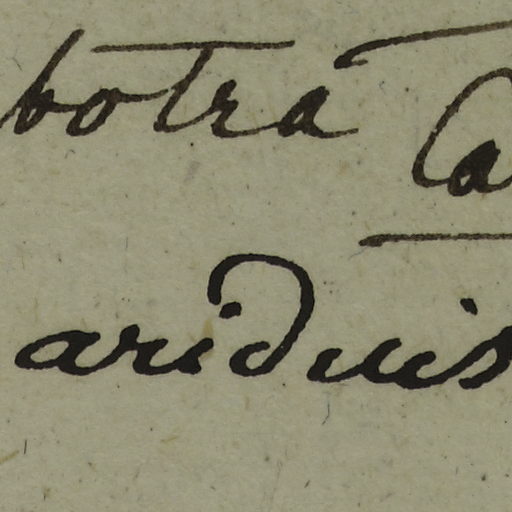 botra Ca
ariduis